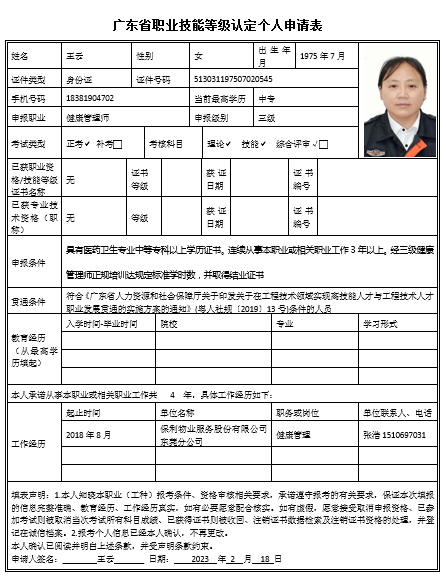 广东省职业技能等级认定个人申请表
姓名 王云 性别 女 出生年月 1975年7月
证件类型 身份证 证件号码 513031197507020545
手机号码 18381904702 当前最高学历 中专
申报职业 健康管理师 申报级别 三级
考试类型 正考✓ 补考□ 考核科目 理论✓ 技能✓ 综合评审√□
已获职业资格/技能等级证书名称 无 证书等级 获证日期 证书编号
已获专业技术资格（职称） 无 等级 获证日期 证书编号
申报条件 具有医药卫生专业中等专科以上学历证书。连续从事本职业或相关职业工作3年以上。经三级健康
管理师正规培训达规定标准学时数，并取得结业证书
贯通条件 符合《广东省人力资源和社会保障厅关于印发关于在工程技术领域实现高技能人才与工程技术人才
职业发展贯通的实施方案的通知》（粤人社规〔2019〕13号)条件的人员
教育经历（从最高学历填起） 入学时间-毕业时间 院校 专业 学习形式
本人承诺从事本职业或相关职业工作共 4 年，具体工作经历如下：
工作经历 起止时间 单位名称 职务或岗位 单位联系人、电话
2018年8月 保利物业服务股份有限公司东莞分公司 健康管理 张浩 1510697031
填表声明：1.本人知晓本职业（工种）报考条件、资格审核相关要求，承诺遵守报考的有关要求，保证本次填报
的信息完整准确、教育经历、工作经历真实，如有必要愿意配合核实。如有虚假，愿意接受取消申报资格、已参
加考试则被取消当次考试所有科目成绩、已获得证书则被收回、注销证书数据检索及注销证书资格的处理，并登
记在诚信档案。2.报考个人信息已经本人确认，不再更改。
本人确认已阅读并明白上述条款，并受声明条款约束。
申请人签名： 王云 日期： 2023 年 2 月 18 日